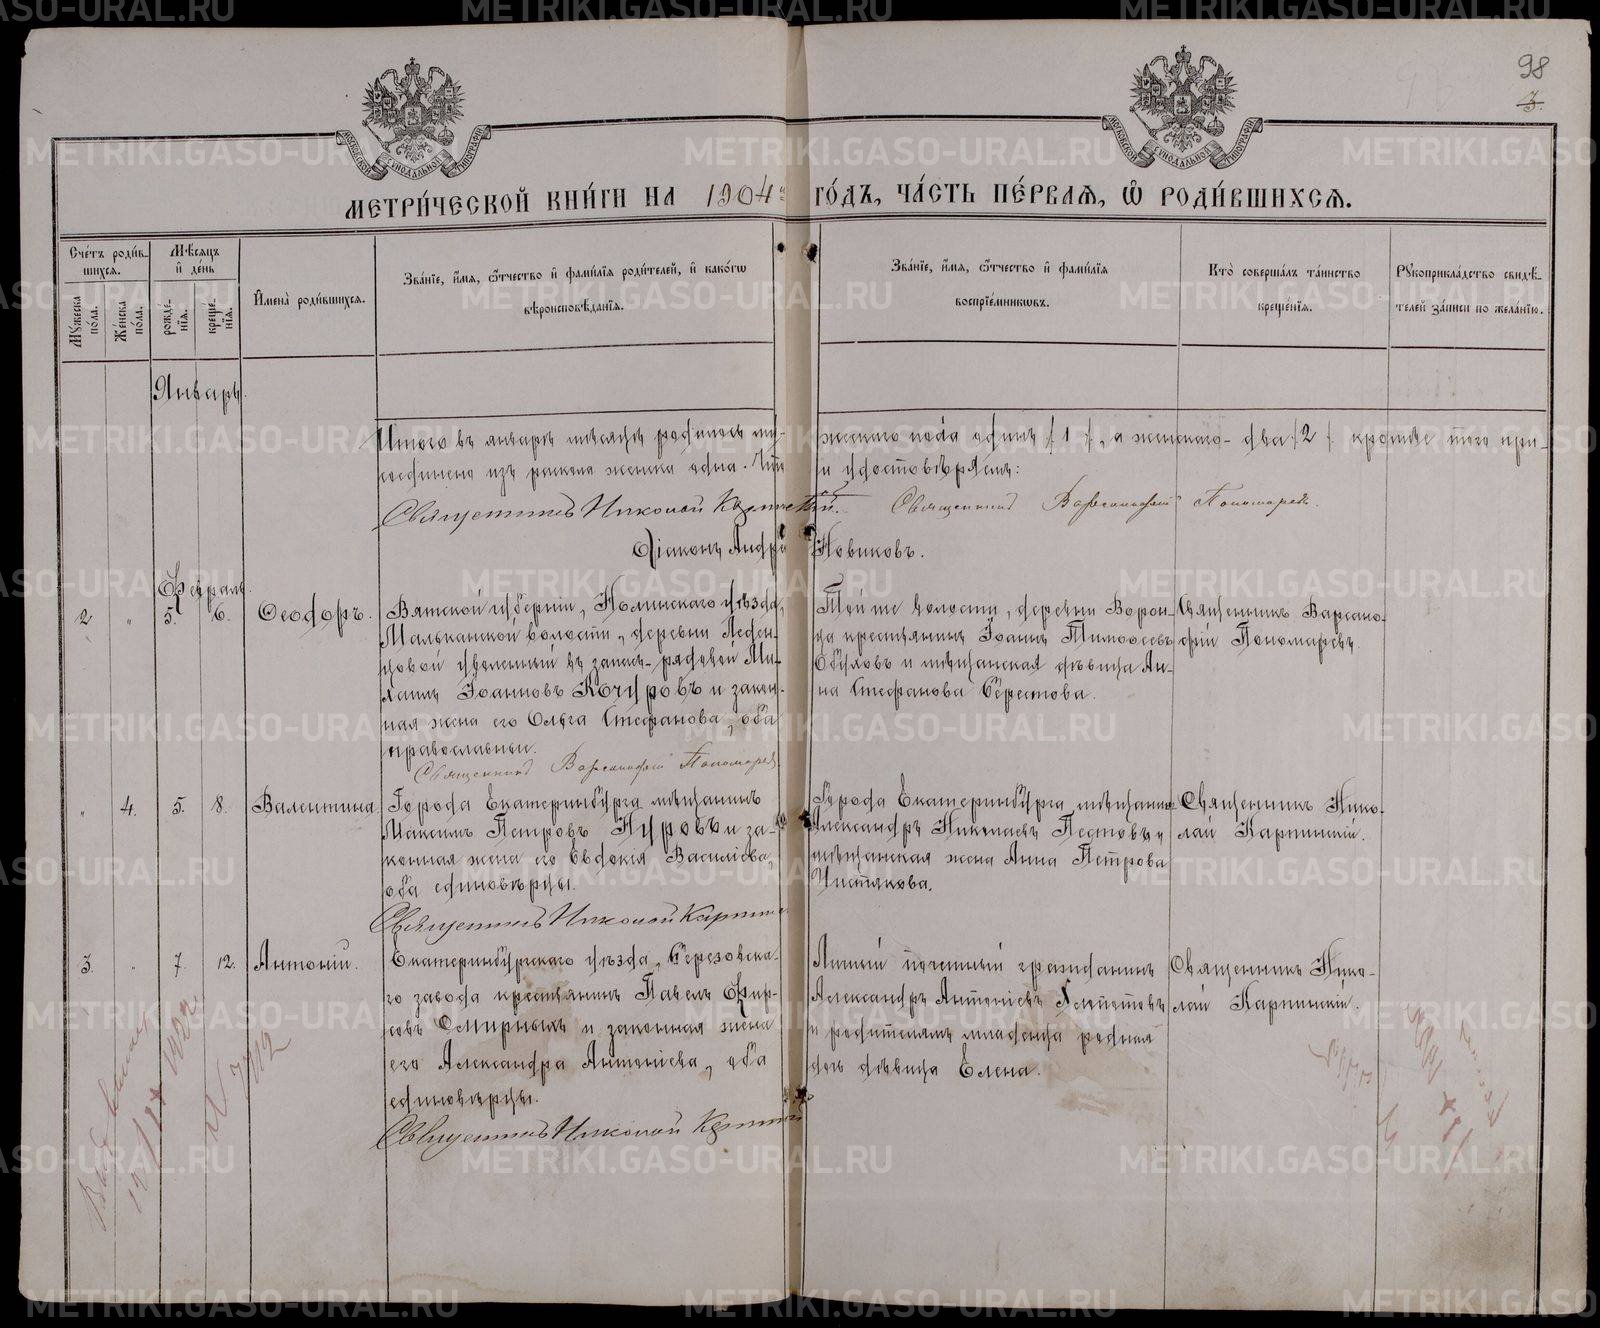 98
3.
МОСКОВСКОЙ СѴНОДАЛЬНОЙ ТИПОГРАФІИ
МОСКОВСКОЙ СѴНОДАЛЬНОЙ ТИПОГРАФІИ
МЕТРИ́ЧЕСКОЙ КНИ́ГИ НА 1904 ГО́ДЪ, ЧА́СТЬ ПЕ́РВАЯ, Ѽ РОДИ́ВШИХСЯ.
Сче́тъ роди́вшихся.
Му́жеска по́ла.
Же́нска по́ла.
Мѣ́сяцъ и де́нь
рожде́нія.
креще́нія.
И́мена̀ роди́вшихся.
Зва́ніе, и́мя, ѻ҆́тчество и҆ фами́лія роди́телей, и҆ како́гѡ
вѣроисповѣ́данія.
Зва́ніе, и́мя, ѻ҆́тчество и҆ фами́лія
воспріе́мниковъ.
Кто̀ соверша́лъ та́инство
креще́нія.
Рукоприкла́дство свидѣ́-
телей за́писи по жела́нію.
Январь.
Итого въ январѣ мѣсяцѣ родилось му-
жескаго пола одинъ /1/, а женскаго - два /2/ кромѣ того при-
соединено изъ раскола женска одна. Что
и удостовѣряемъ:
Священникъ Николай Карпинскій.
Священникъ Варсанофій Пономаревъ.
Діаконъ Андрей Новиковъ.
Февраль.
2 " 5. 6. Ѳеодоръ.
Вятской губерніи, Нолинскаго уѣзда,
Малькaнской волости, деревни Леден-
цовой уволенный въ запасъ рядовой Ми-
хаилъ Іоанновъ Кочуровъ и закон-
ная жена его Ольга Стефанова, оба
православные.
Священникъ Варсанофій Пономаревъ.
Той же волости, деревни Ворон-
ца крестьянинъ Іоаннъ Тимоѳеевъ
Обуховъ и мѣщанская дѣвица Ан-
на Стефанова Берестова.
Священникъ Варсано-
фій Пономаревъ.
" 4. 5. 8. Валентина
Города Екатеринбурга мѣщанинъ
Максимъ Петровъ Нуровъ и за-
конная жена его Евдокія Василіева,
оба единовѣрцы.
Священникъ Николай Карпинскій
Города Екатеринбурга мѣщанинъ
Александръ Николаевъ Пестовъ и
мѣщанская жена Анна Петрова
Чистякова.
Священникъ Нико-
лай Карпинскій.
3. " 7. 12. Антоній.
Екатеринбургскаго уѣзда, Березовска-
го завода крестьянинъ Павелъ Фир-
совъ Смирныхъ и законная жена
его Александра Антоніева, оба
единовѣрцы.
Священникъ Николай Карпинскій
Личный почетный гражданинъ
Александръ Антоніевъ
и родителямъ младенца родная
дочь дѣвица Елена.
Священникъ Нико-
лай Карпинскій.
1922
N 7012
METRIKI.GASO-URAL.RU